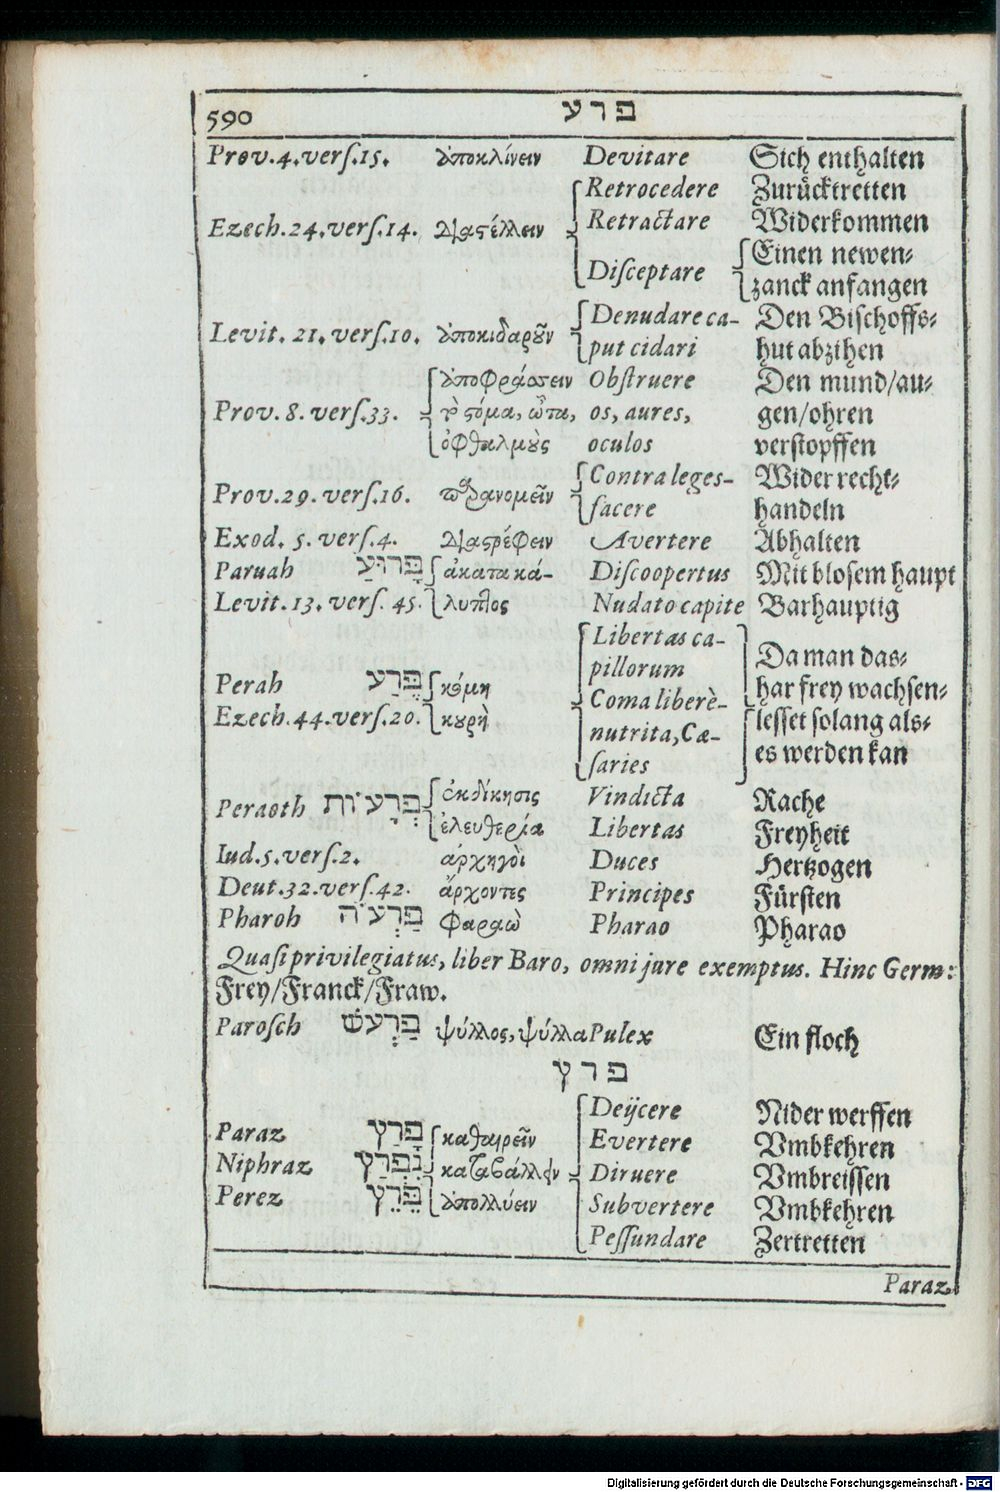 590 פרע
Prov. 4. verſ. 15. ἀποκλίνειν Devitare Sich enthalten
Retrocedere Zurücktretten
Ezech. 24. verſ. 14. διαστέλλειν Retractare Widerkommen
Diſceptare Einen newen-
zanck anfangen
Levit. 21. verſ. 10. ἀποκιδαροῦν Denudare ca- Den Biſchoffs-
put cidari hut abzihen
ἀποφράσσειν Obſtruere Den mund/au-
Prov. 8. verſ. 33. τὸ στόμα, ὦτα, os, aures, gen/ohren
ὀφθαλμοὺς oculos verſtopffen
Contra leges- Wider recht-
Prov. 29. verſ. 16. παρανομεῖν facere handeln
Exod. 5. verſ. 4. διαστρέφειν Avertere Abhalten
Paruah פָּרוּעַ ἀκατακά- Diſcoopertus Mit bloſem haupt
Levit. 13. verſ. 45. λυπτος Nudato capite Barhauptig
Libertas ca-
pillorum Da man das-
Perah פֶּרַע κόμη Coma liberè- har frey wachſen-
Ezech. 44. verſ. 20. κουρὴ nutrita, Cæ- leſſet ſolang als-
ſaries es werden kan
Peraoth פְּרָעוֹת ἐκδίκησις Vindicta Rache
ἐλευθερία Libertas Freyheit
Iud. 5. verſ. 2. ἀρχηγοὶ Duces Hertzogen
Deut. 32. verſ. 42. ἄρχοντες Principes Fürſten
Pharoh פַּרְעֹה Φαραὼ Pharao Pharao
Quaſi privilegiatus, liber Baro, omni jure exemptus. Hinc Germ:
Frey/Franck/Fraw.
Paroſch פַּרְעֹשׁ ψύλλος, ψύλλα Pulex Ein floch
פרץ
Deijcere Nider werffen
Paraz פָּרַץ καθαιρεῖν Evertere Vmbkehren
Niphraz נִפְרַץ καταβάλλειν Diruere Vmbreiſſen
Perez פֶּרֶץ ἀπολλύειν Subvertere Vmbkehren
Peſſundare Zertretten
Paraz
Digitalisierung gefördert durch die Deutsche Forschungsgemeinschaft - DFG